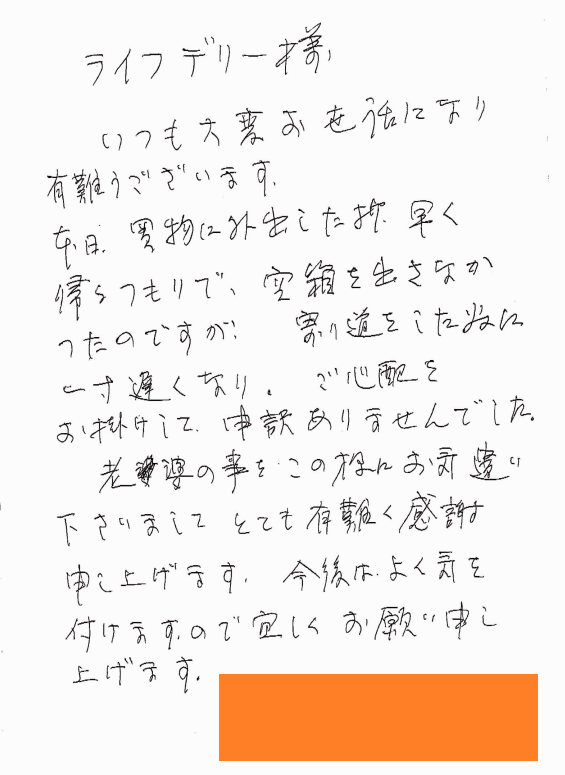 ライフデリー様
いつも大変お世話になり
有難うございます。
本日、買物に外出した折、早く
帰るつもりで、空箱を出さなか
つたのですが、寄り道をした為に
一寸遅くなり、ご心配を
お掛けして、申訳ありませんでした。
老婆の事をこの様にお気遣い
下さいましてとても有難く感謝
申し上げます。今後は、よく気を
付けますので宜しくお願い申し
上げます。